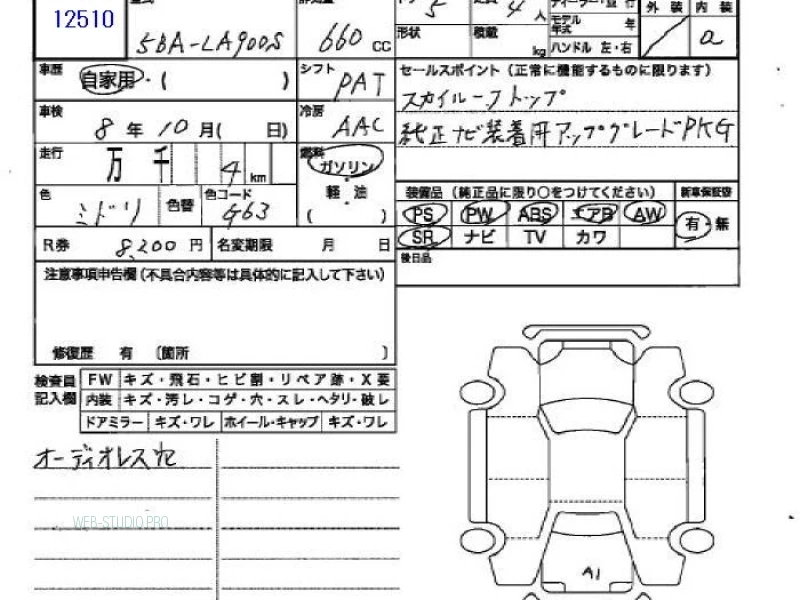 12510
5BA-LA900S
660 cc
5
4 人
年式
年
外装 内装
a
形状
積載
kg
ハンドル 左・右
車歴
自家用・( )
シフト
PAT
セールスポイント (正常に機能するものに限ります)
スカイルーフトップ
純正ナビ装着用アップグレードPKG
車検
8 年 10 月( 日)
冷房
AAC
走行
万 千 4 km
燃料
ガソリン
軽・油
( )
色
ミドリ
色替
色コード
G63
装備品 (純正品に限り○をつけてください)
新車保証書
PS PW ABS エアB AW
有・無
SR ナビ TV カワ
R券 8,200 円
名変期限 月 日
後日品
注意事項申告欄 (不具合内容等は具体的に記入して下さい)
修復歴 有 〔箇所 〕
検査員
記入欄
FW キズ・飛石・ヒビ割・リペア跡・X要
内装 キズ・汚レ・コゲ・穴・スレ・ヘタリ・破レ
ドアミラー キズ・ワレ ホイール・キャップ キズ・ワレ
オーディオレス
WEB-STUDIO.PRO
A1